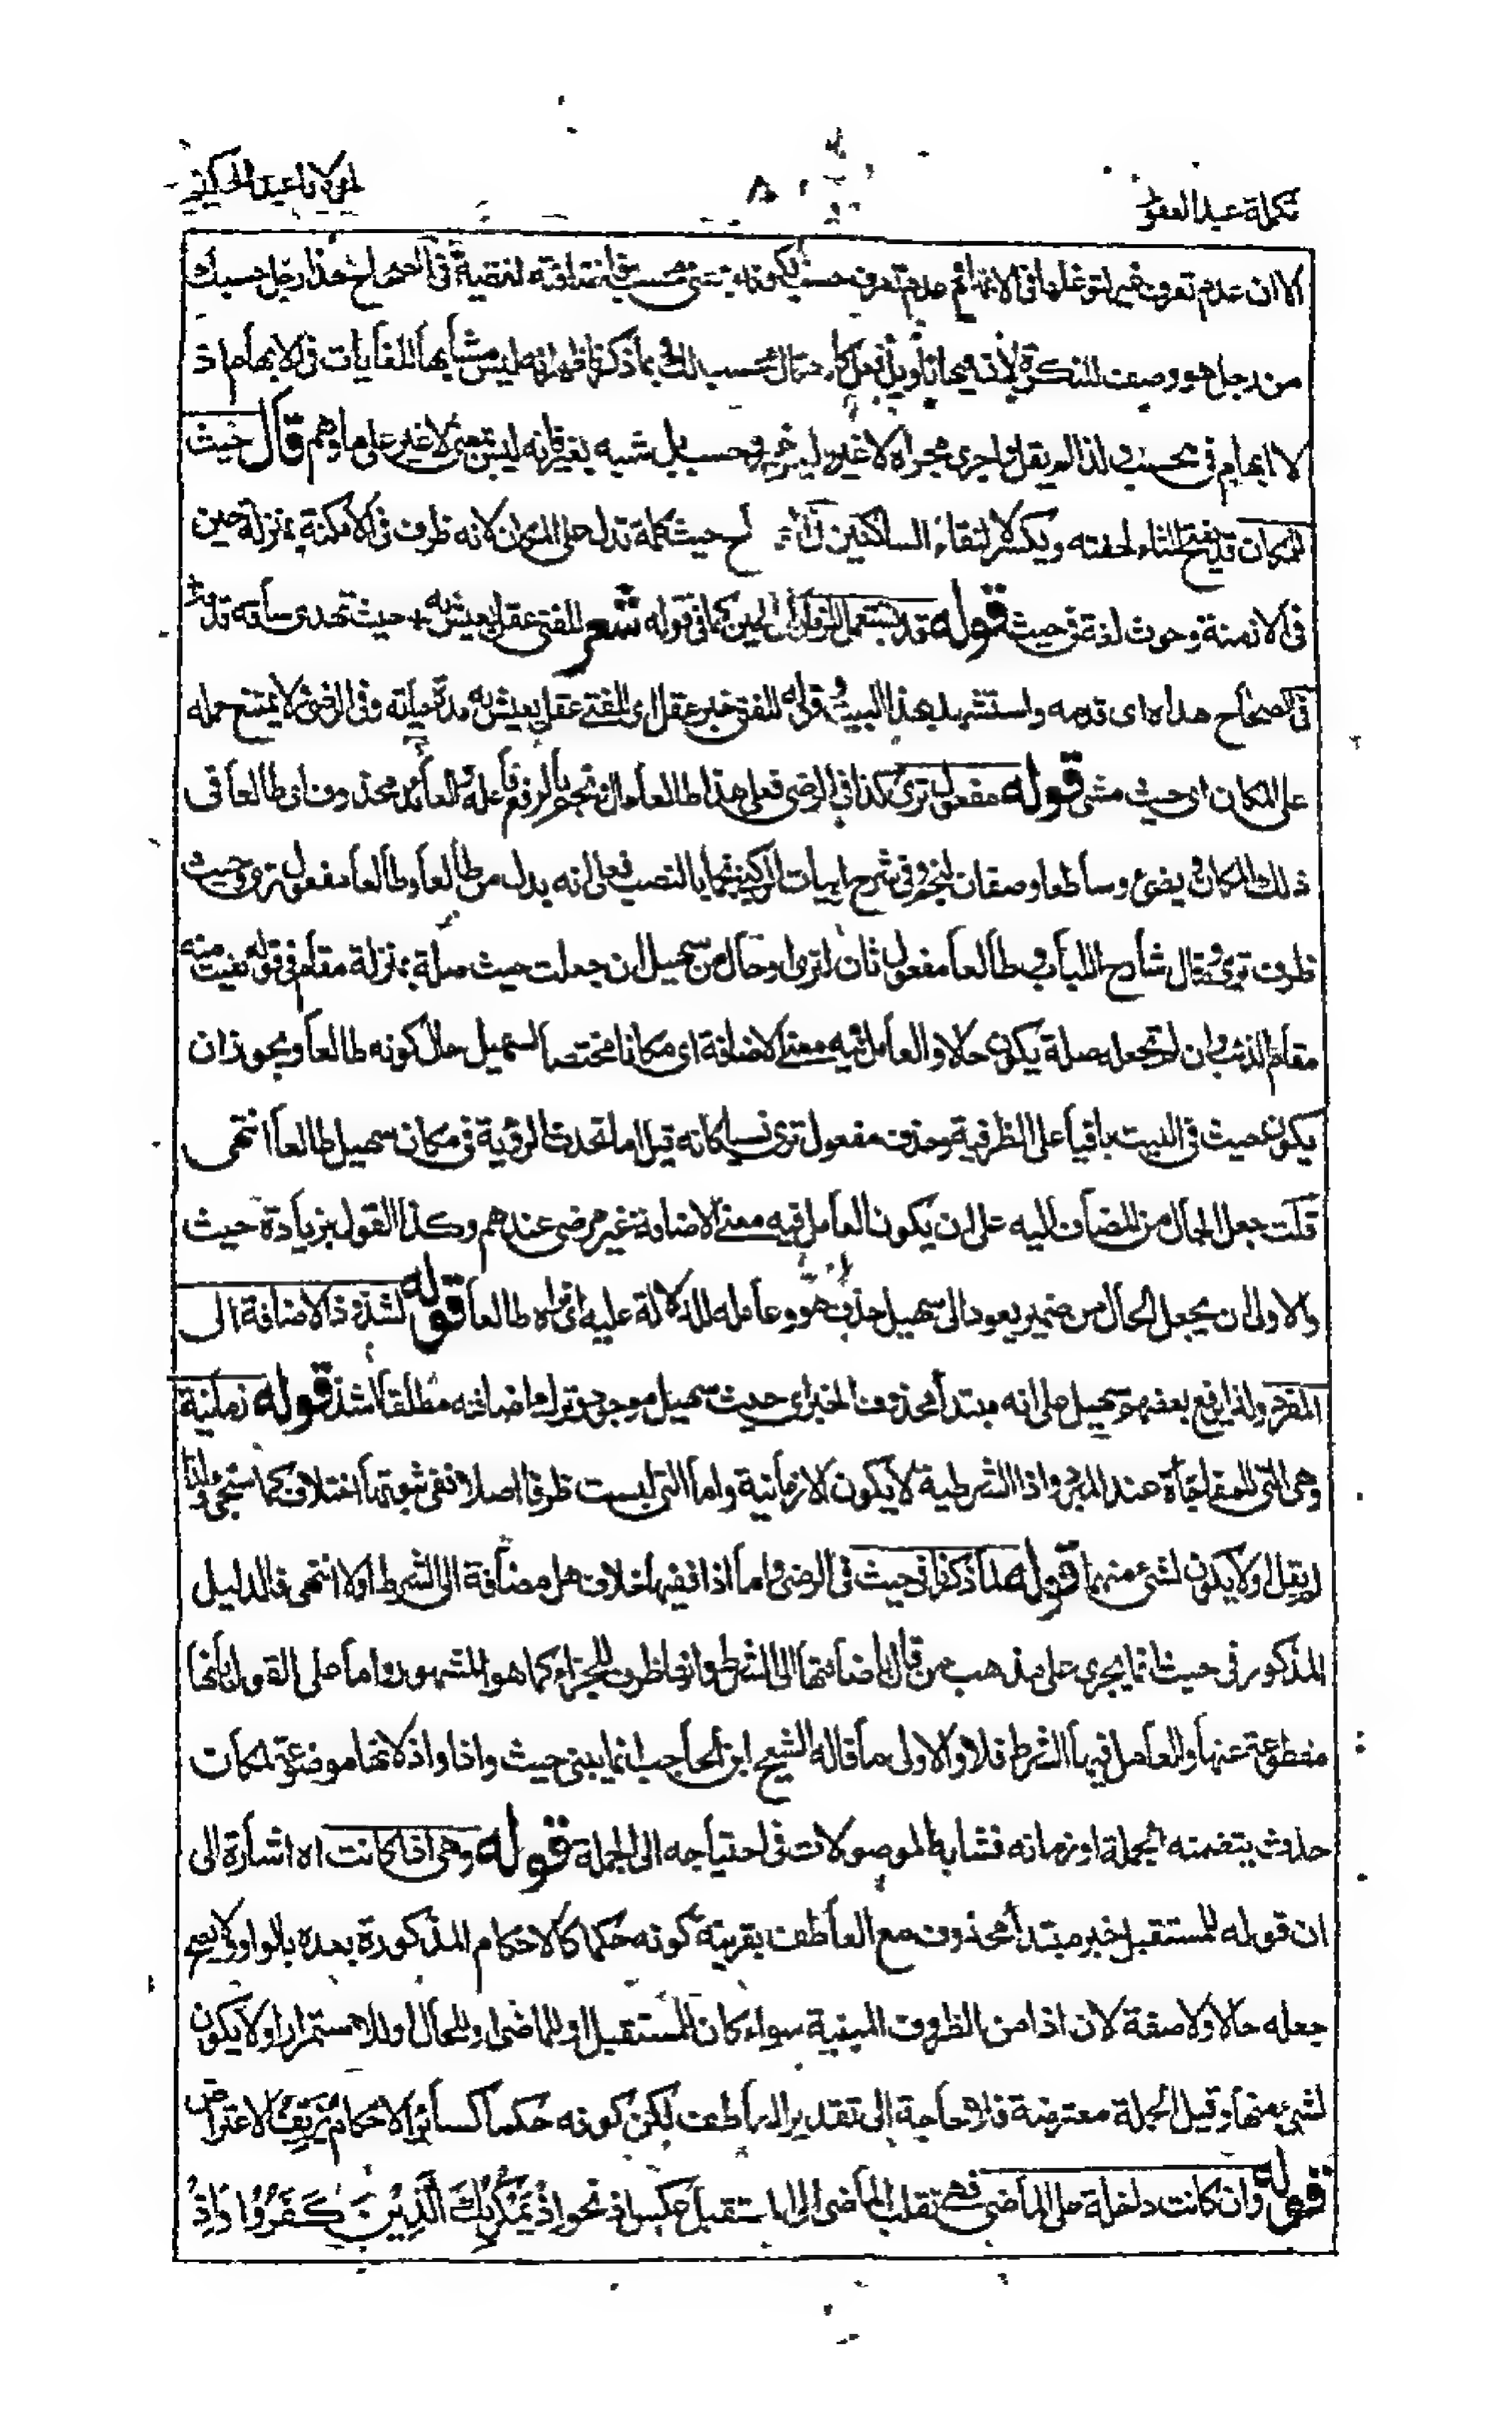 تكملة عبد الغفور
٨٠
لمولانا عبد الحكيم
الا ان عدم تعرف غير لتوغلها فى الابهام عدم تعرف حسب لكونه بمعنى محسب فاضافته لفظية فى الصحاح هذا رجل حسبك
من رجل هو وصف للنكرة لان فيه تأويل فعل كانه قال محسب لك بما ذكرنا ظهر انه ليس مشابها للغايات فى الابهام اذ
لا ابهام فى محسب ولذا لم يقل اجرى مجراه لا غير وليس غير وحسب بل شبه بغير فانه ليس بمعنى لا غير على ما وهم قال حيث
للمكان قد يفتح الثاء لخفته ويكسر لالتقاء الساكنين حيث كلمة تدل على المكان لانه ظرف فى الامكنة بمنزلة حين
فى الازمنة وحوث لغة فى حيث قوله قد يستعمل الزمان كما فى قوله شعر للفتى عقل يعيش به + حيث تهدى ساقه قدمه
فى الصحاح هداه اى قدمه واستشهد بهذا البيت قوله للفتى خبر عقل اى للفتى عقل يعيش به مدة حياته وفى الرضى لا يمتنع حمله
على المكان اى حيث مشى قوله مفعول ترى كذا فى الرضى فعلى هذا طالعا حال ونجم بالرفع فاعله والعائد محذوف اى طالعا فى
ذلك المكان ويضئ وساطعا وصفان لنجم وفى شرح ابيات نجما بالنصب فعلى انه بدل من طالعا وطالعا مفعول ترى وحيث
ظرف ترى وقال شارح اللباب طالعا مفعول ثان لترى او حال من سهيل ان جعلت حيث صلة بمنزلة مقام فى قوله نفيت منه
مقام الذئب وان لم تجعله صلة يكون حالا والعامل فيه معنى الاضافة اى مكانا مختصا لسهيل حال كونه طالعا ويجوز ان
يكون حيث فى البيت باقيا على الظرفية وحذف مفعول ترى نسيا كانه قيل اما تحدث الرؤية فى مكان سهيل طالعا انتهى
قلت جعل الحال من المضاف اليه على ان يكون العامل فيه معنى الاضافة غير مرضى عندهم وكذا القول بزيادة حيث
والاولى ان يجعل الحال من ضمير يعود الى سهيل حذف هو وعامله للدلالة عليه اى تراه طالعا قوله لشذوذ الاضافة الى
المفرد ولذا يرفع بعضهم سهيل على انه مبتدأ محذوف الخبر اى حيث سهيل موجود وترك اضافته مطلقا اشذ قوله زمانية
وهى التى للمفاجأة عند المبرد واذا الشرطية لا يكون الا زمانية واما التى ليست ظرفا اصلا ففى ثبوتها اختلاف كما سيجئ ولذا
لم يقل اولا يكون لشئ منهما قوله لما ذكرنا فى حيث فى الرضى واما اذا ففيها خلاف هل مضافة الى الشرط اولا انتهى فالدليل
المذكور فى حيث انما يجرى على مذهب من قال باضافتها الى الشرط وانها ظرف للجزاء كما هو المشهور واما على القول بانها
مقطوعة عنها والعامل فيها الشرط فلا والاولى ما قاله الشيخ ابن الحاجب انما يبنى حيث واذا واذ لانها موضوعة لمكان
حدث يتضمنه الجملة او زمانه فشابه الموصولات فى احتياجه الى الجملة قوله وهى اذا كانت اه اشارة الى
ان قوله للمستقبل خبر مبتدأ محذوف مع العاطف بقرينة كونه حكما كالاحكام المذكورة بعده بالواو ولا يصح
جعله حالا ولا صفة لان اذا من الظروف المبنية سواء كان للمستقبل او للماضى او للحال او للاستمرار او لا يكون
لشئ منها وقيل الجملة معترضة فلا حاجة الى تقدير العاطف لكن كونه حكما كسائر الاحكام يزيف الاعتراض
قوله وان كانت داخلة على الماضى فهى تقلب الماضى الى المستقبل عكس اذ نحو اِذْ يَمْكُرُ بِكَ الَّذِيْنَ كَفَرُوْا وَاِذْ